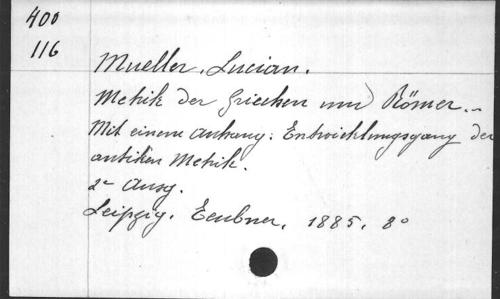 400
116
Mueller, Lucian.
Metrik der Griechen und Römer.-
Mit einem Anhang: Entwicklungsgang der
antiken Metrik.
2e Ausg.
Leipzig, Teubner, 1885, 8°